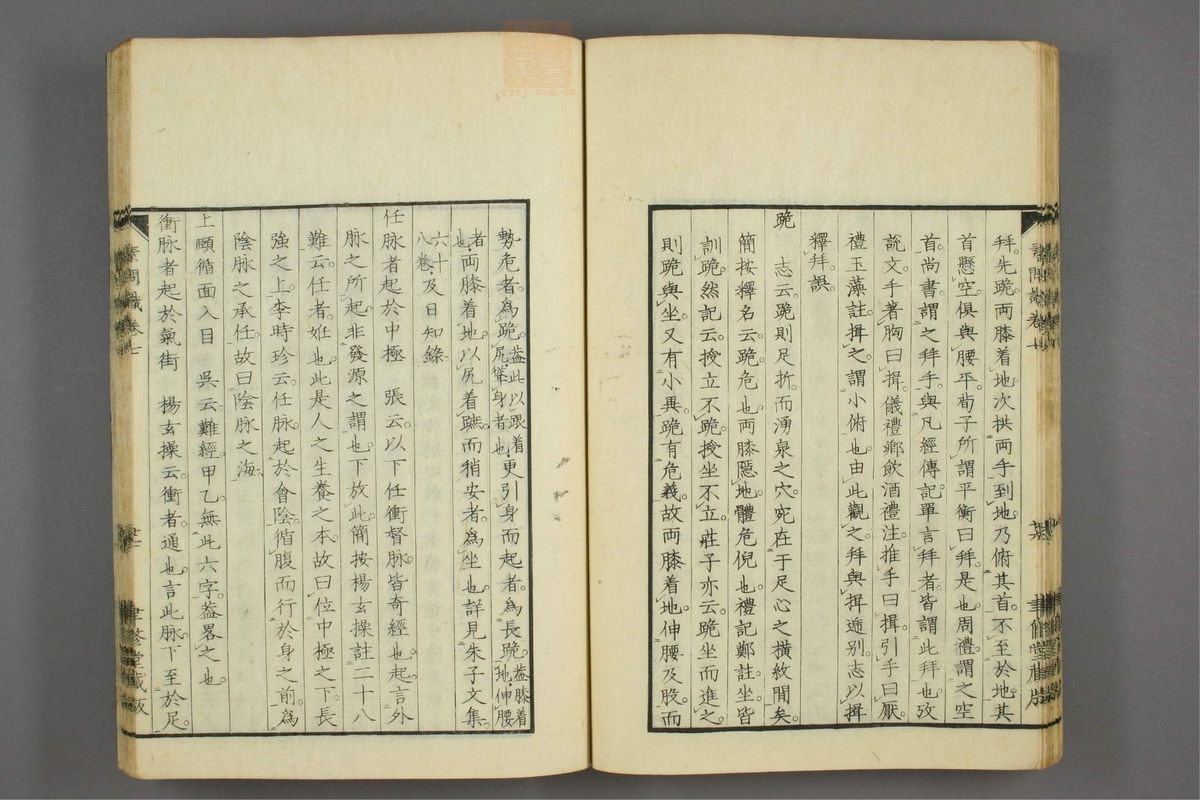 拜先跪兩膝着地次拱兩手到地乃俯其首不至於地其
首懸空俱與腰平荀子所謂平衡曰拜是也周禮謂之空
首尚書謂之拜手與凡經傳記單言拜者皆謂此拜也攷
說文手著胸曰揖儀禮鄉飲酒禮注推手曰揖引手曰厭
禮玉藻註揖之謂小俯也由此觀之拜與揖逈別志以揖
釋拜誤
跪　志云跪則足折而湧泉之穴宛在于足心之橫紋間矣
簡按釋名云跪危也兩膝隱地體危倪也禮記鄭註坐皆
訓跪然記云授立不跪授坐不立莊子亦云跪坐而進之
則跪與坐又有小異跪有危義故兩膝着地伸腰及股而
勢危者為跪蓋此以跟着尻聳身者也更引身而起者為長跪蓋膝着地伸腰
者也兩膝着地以尻着蹠而稍安者為坐也詳見朱子文集
六十八卷及日知錄
任脉者起於中極　張云以下任衝督脉皆奇經也起言外
脉之所起非發源之謂也下放此簡按楊玄操註二十八
難云任者妊也此是人之生養之本故曰位中極之下長
強之上李時珍云任脉起於會陰循腹而行於身之前為
陰脉之承任故曰陰脉之海
上頤循面入目　吳云難經甲乙無此六字蓋畧之也
衝脉者起於氣街　楊玄操云衝者通也言此脉下至於足
素問識卷七
聿修堂藏版